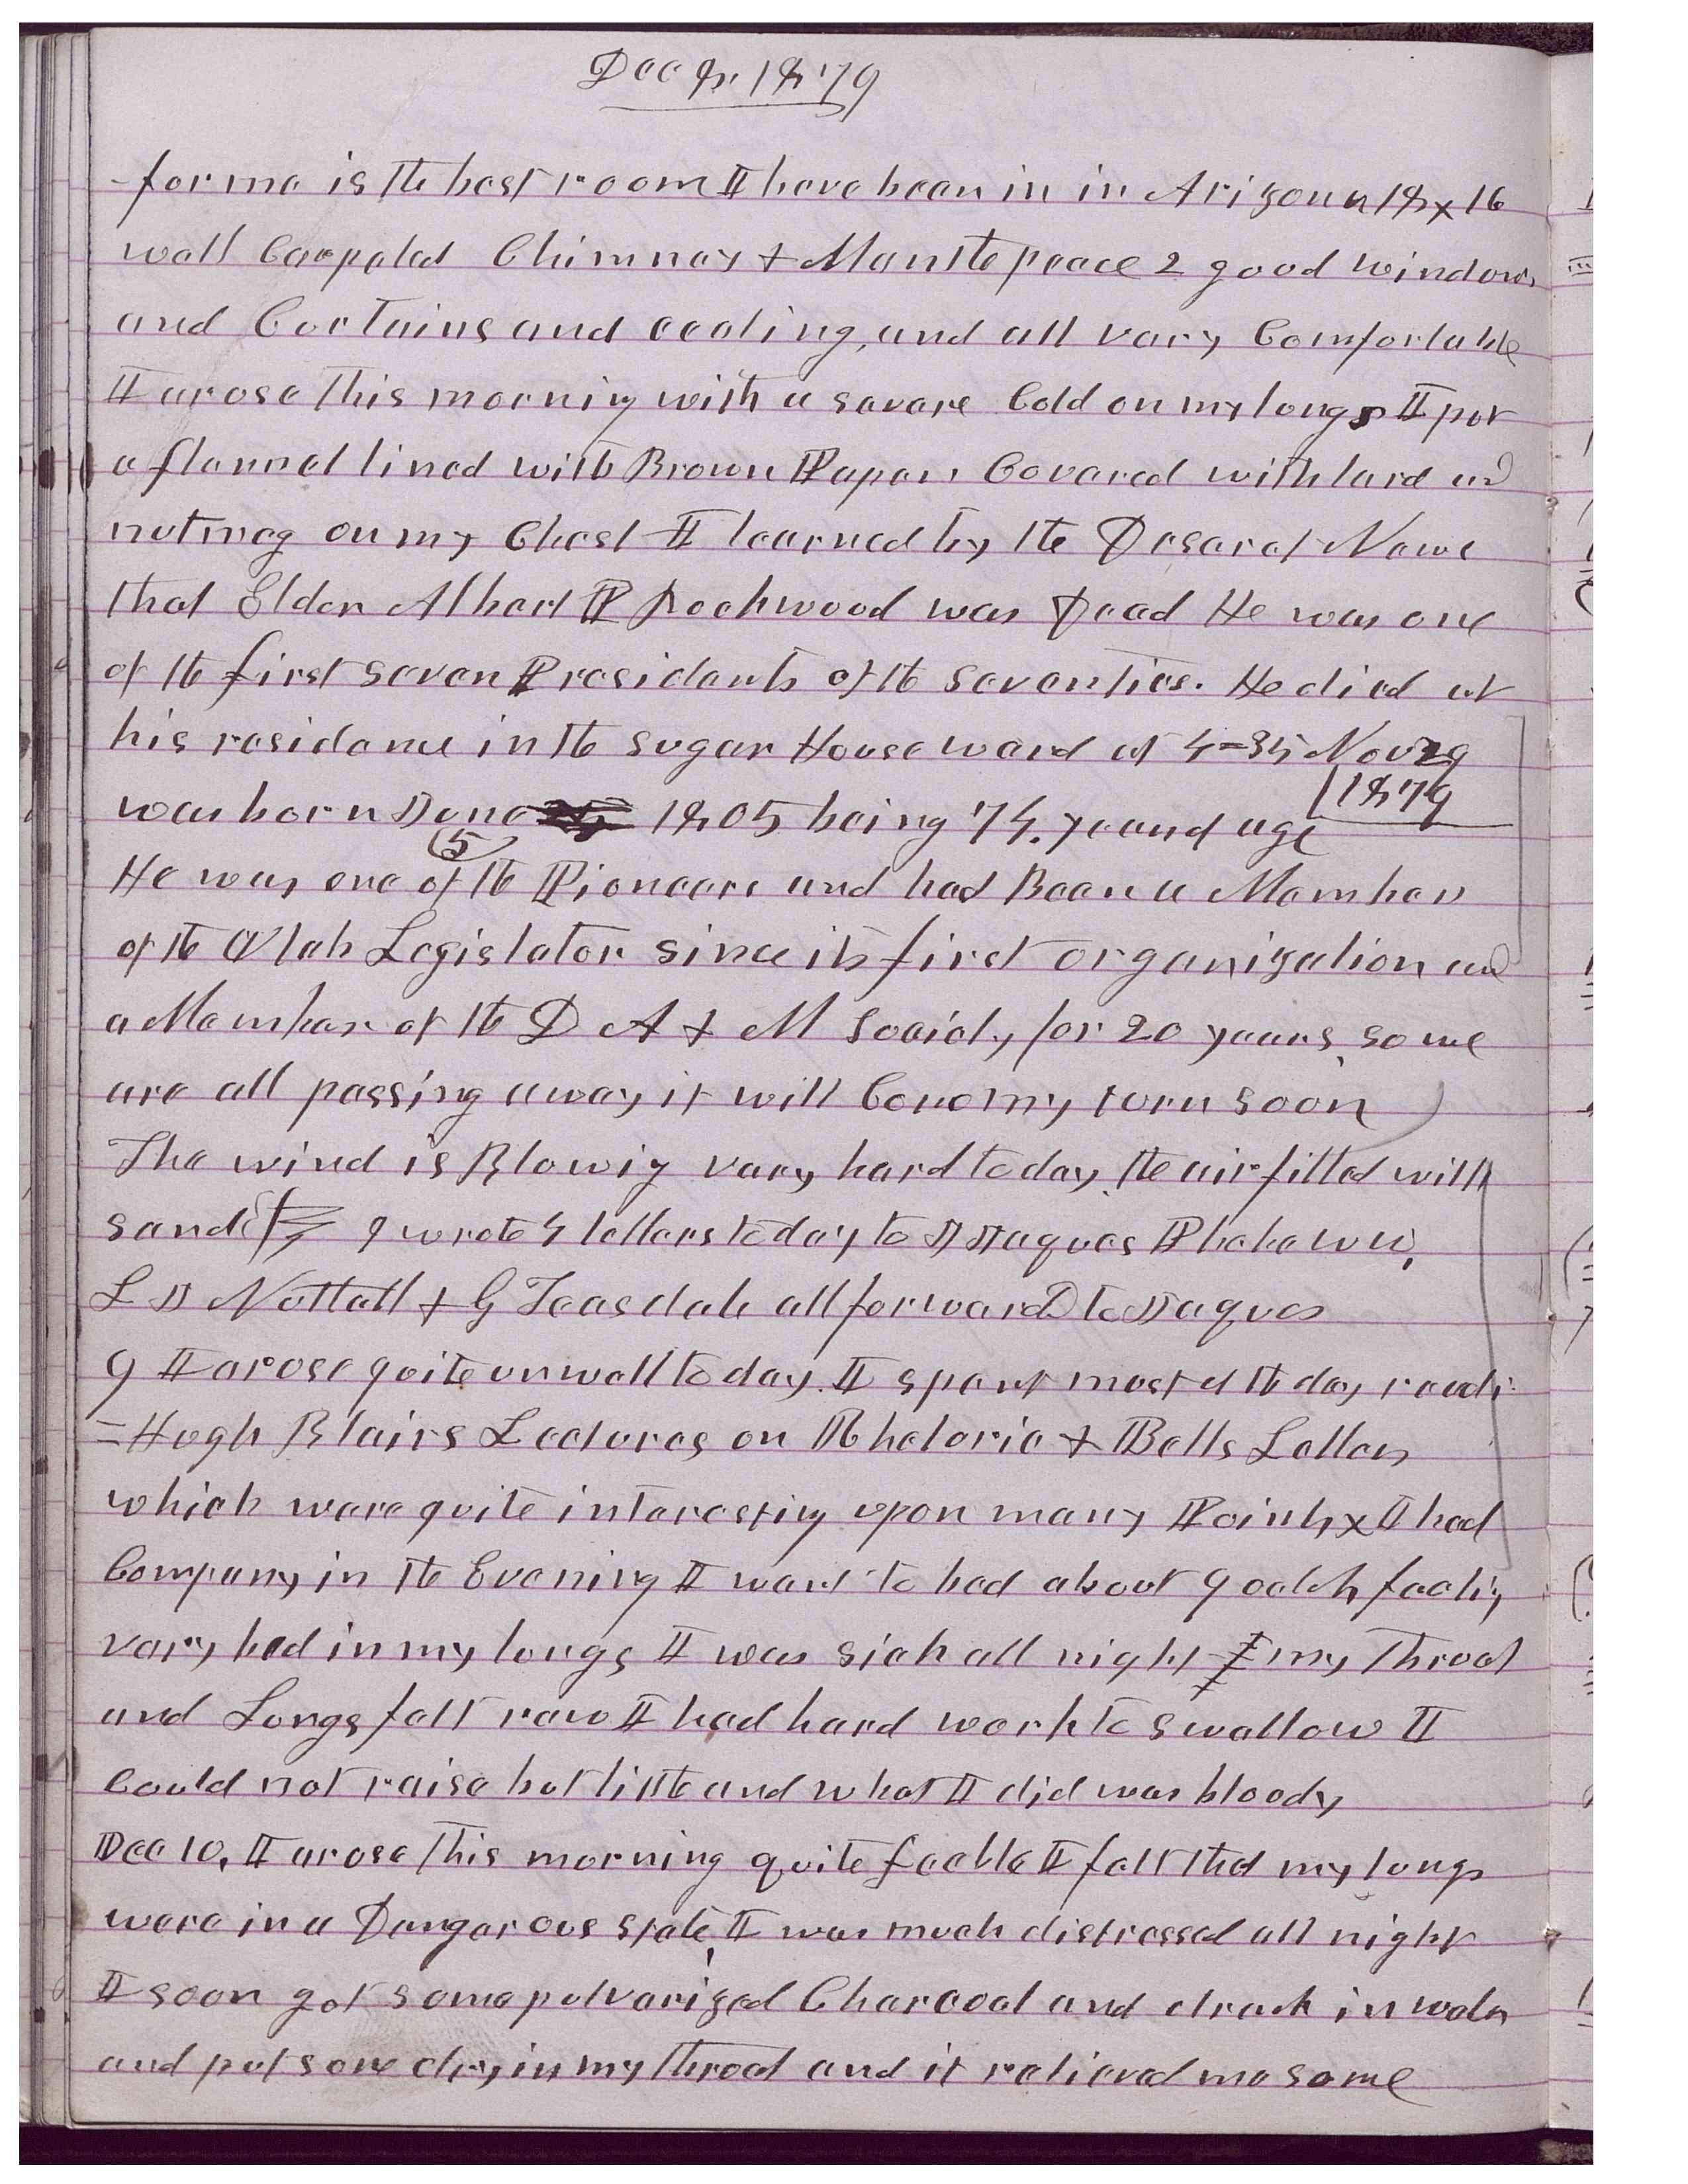 Dec 8, 1879
-for me is the best room I have been in in Arizona 18 x 16
well Carpeted Chimney & Mantlepeace 2 good windows
and Curtains and ceeling, and all very Comfortable
I arose this morning with a severe Cold on my lungs I put
a flannel lined with Brown Paper Covered with lard and
nutmeg on my Chest I learned by the Deseret News
that Elder Albert P Rockwood was Dead He was one
of the first seven Presidents of the seventies. He died at
his residence in the Sugar House ward at 4=34 Nov 29
1879
was born June 1805 being 74. years of age
5
He was one of the Pioneers and had Been a Member
of the Utah Legislator since its first organization and
a Member of the D A & M Society for 20 years, so we
are all passing away it will Come my turn soon
The wind is Blowing very hard to day, the air filled with
sand I wrote 4 letters to day to J Jaques Phebe W W,
L J Nuttall & G Teasdale all forward to Jaques
9 I arose quite unwell to day. I spent most of the day readi
=Hugh Blairs Lectures on Rhetoric & Bells Letters
which were quite interesting upon many Points x I had
Company in the Evening I went to bed about 9 oclock feeling
very bad in my lungs I was sick all night my Throat
and Lungs felt raw I had hard work to swallow I
Could not raise but little and what I did was bloody
Dec 10, I arose this morning quite feeble I felt that my lungs
were in a Dangerous state, I was much distressed all night
I soon got some pulverized Charcoal and drank in water
and put some dry in my throat and it relieved me some